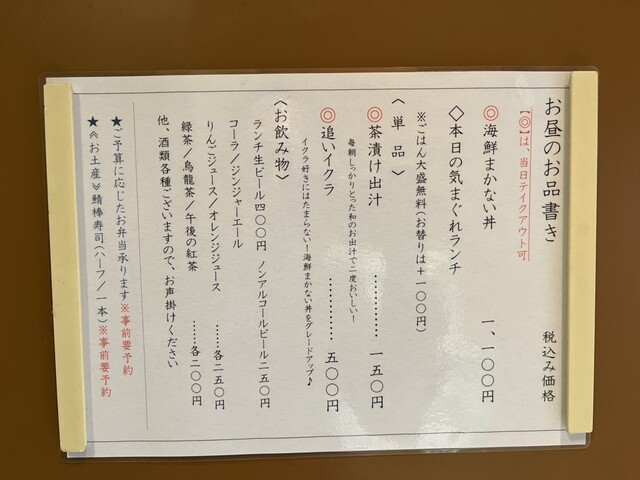 お昼のお品書き 税込み価格
【◎】は、当日テイクアウト可
◎海鮮まかない丼 一、一〇〇円
◇本日の気まぐれランチ
※ごはん大盛無料(お替りは+一〇〇円)
〈単品〉
◎茶漬け出汁 ‥‥‥‥‥ 一五〇円
毎朝しっかりとった和のお出汁で二度おいしい!
◎追いイクラ ‥‥‥‥‥ 五〇〇円
イクラ好きにはたまらない!海鮮まかない丼をグレードアップ♪
〈お飲み物〉
ランチ生ビール四〇〇円 ノンアルコールビール二五〇円
コーラ/ジンジャーエール
りんごジュース/オレンジジュース ‥‥‥各二五〇円
緑茶/烏龍茶/午後の紅茶 ‥‥‥各二〇〇円
他、酒類各種ございますので、お声掛けください
★ご予算に応じたお弁当承ります※事前要予約
★《お土産》鯖棒寿司(ハーフ/一本)※事前要予約